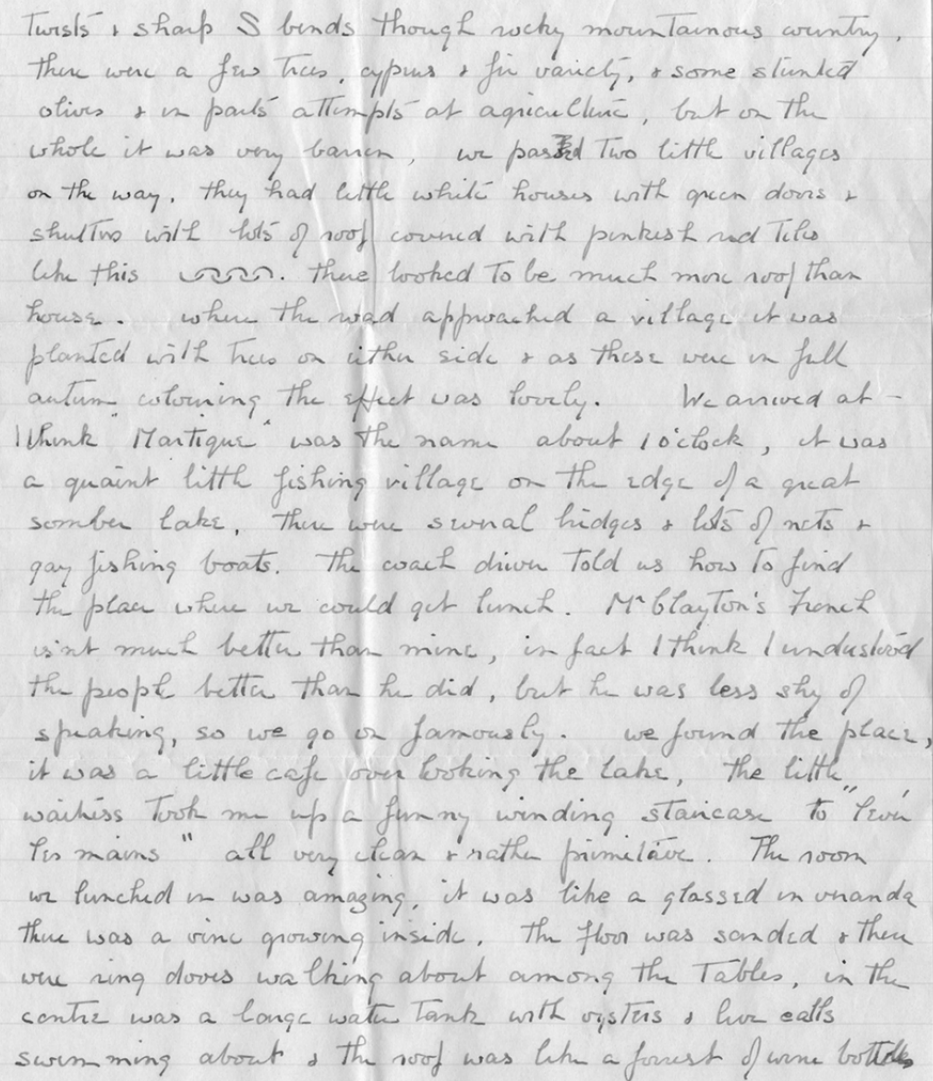 Twists & sharp S bends though rocky mountainous country,
there were a few trees, cyprus & fir variety, & some stunted
olives & in parts attempts at agriculture, but on the
whole it was very barren, we passed two little villages
on the way, they had little white houses with green doors &
shutters with lots of roof covered with pinkish red tiles
like this . there looked to be much more roof than
house. where the road approached a village it was
planted with trees on either side & as these were in full
autum colouring the effect was lovely. We arrived at -
I think "Martique" was the name about 1 o'clock, it was
a quaint little fishing village on the edge of a great
somber lake, there were several bridges & lots of nets &
gay fishing boats. The coach driver told us how to find
the place where we could get lunch. Mr Clayton's French
is'nt much better than mine, in fact I think I understood
the people better than he did, but he was less shy of
speaking, so we go on famously. we found the place,
it was a little cafe over looking the lake, the little
waitress took me up a funny winding staircase to "
les mains" all very clean & rather primitive. The room
we lunched in was amazing, it was like a glassed in veranda
there was a vine growing inside. The floor was sanded & there
were ring doves walking about among the tables, in the
centre was a large water tank with oysters & live
swimming about & the roof was like a forrest of wine bottles